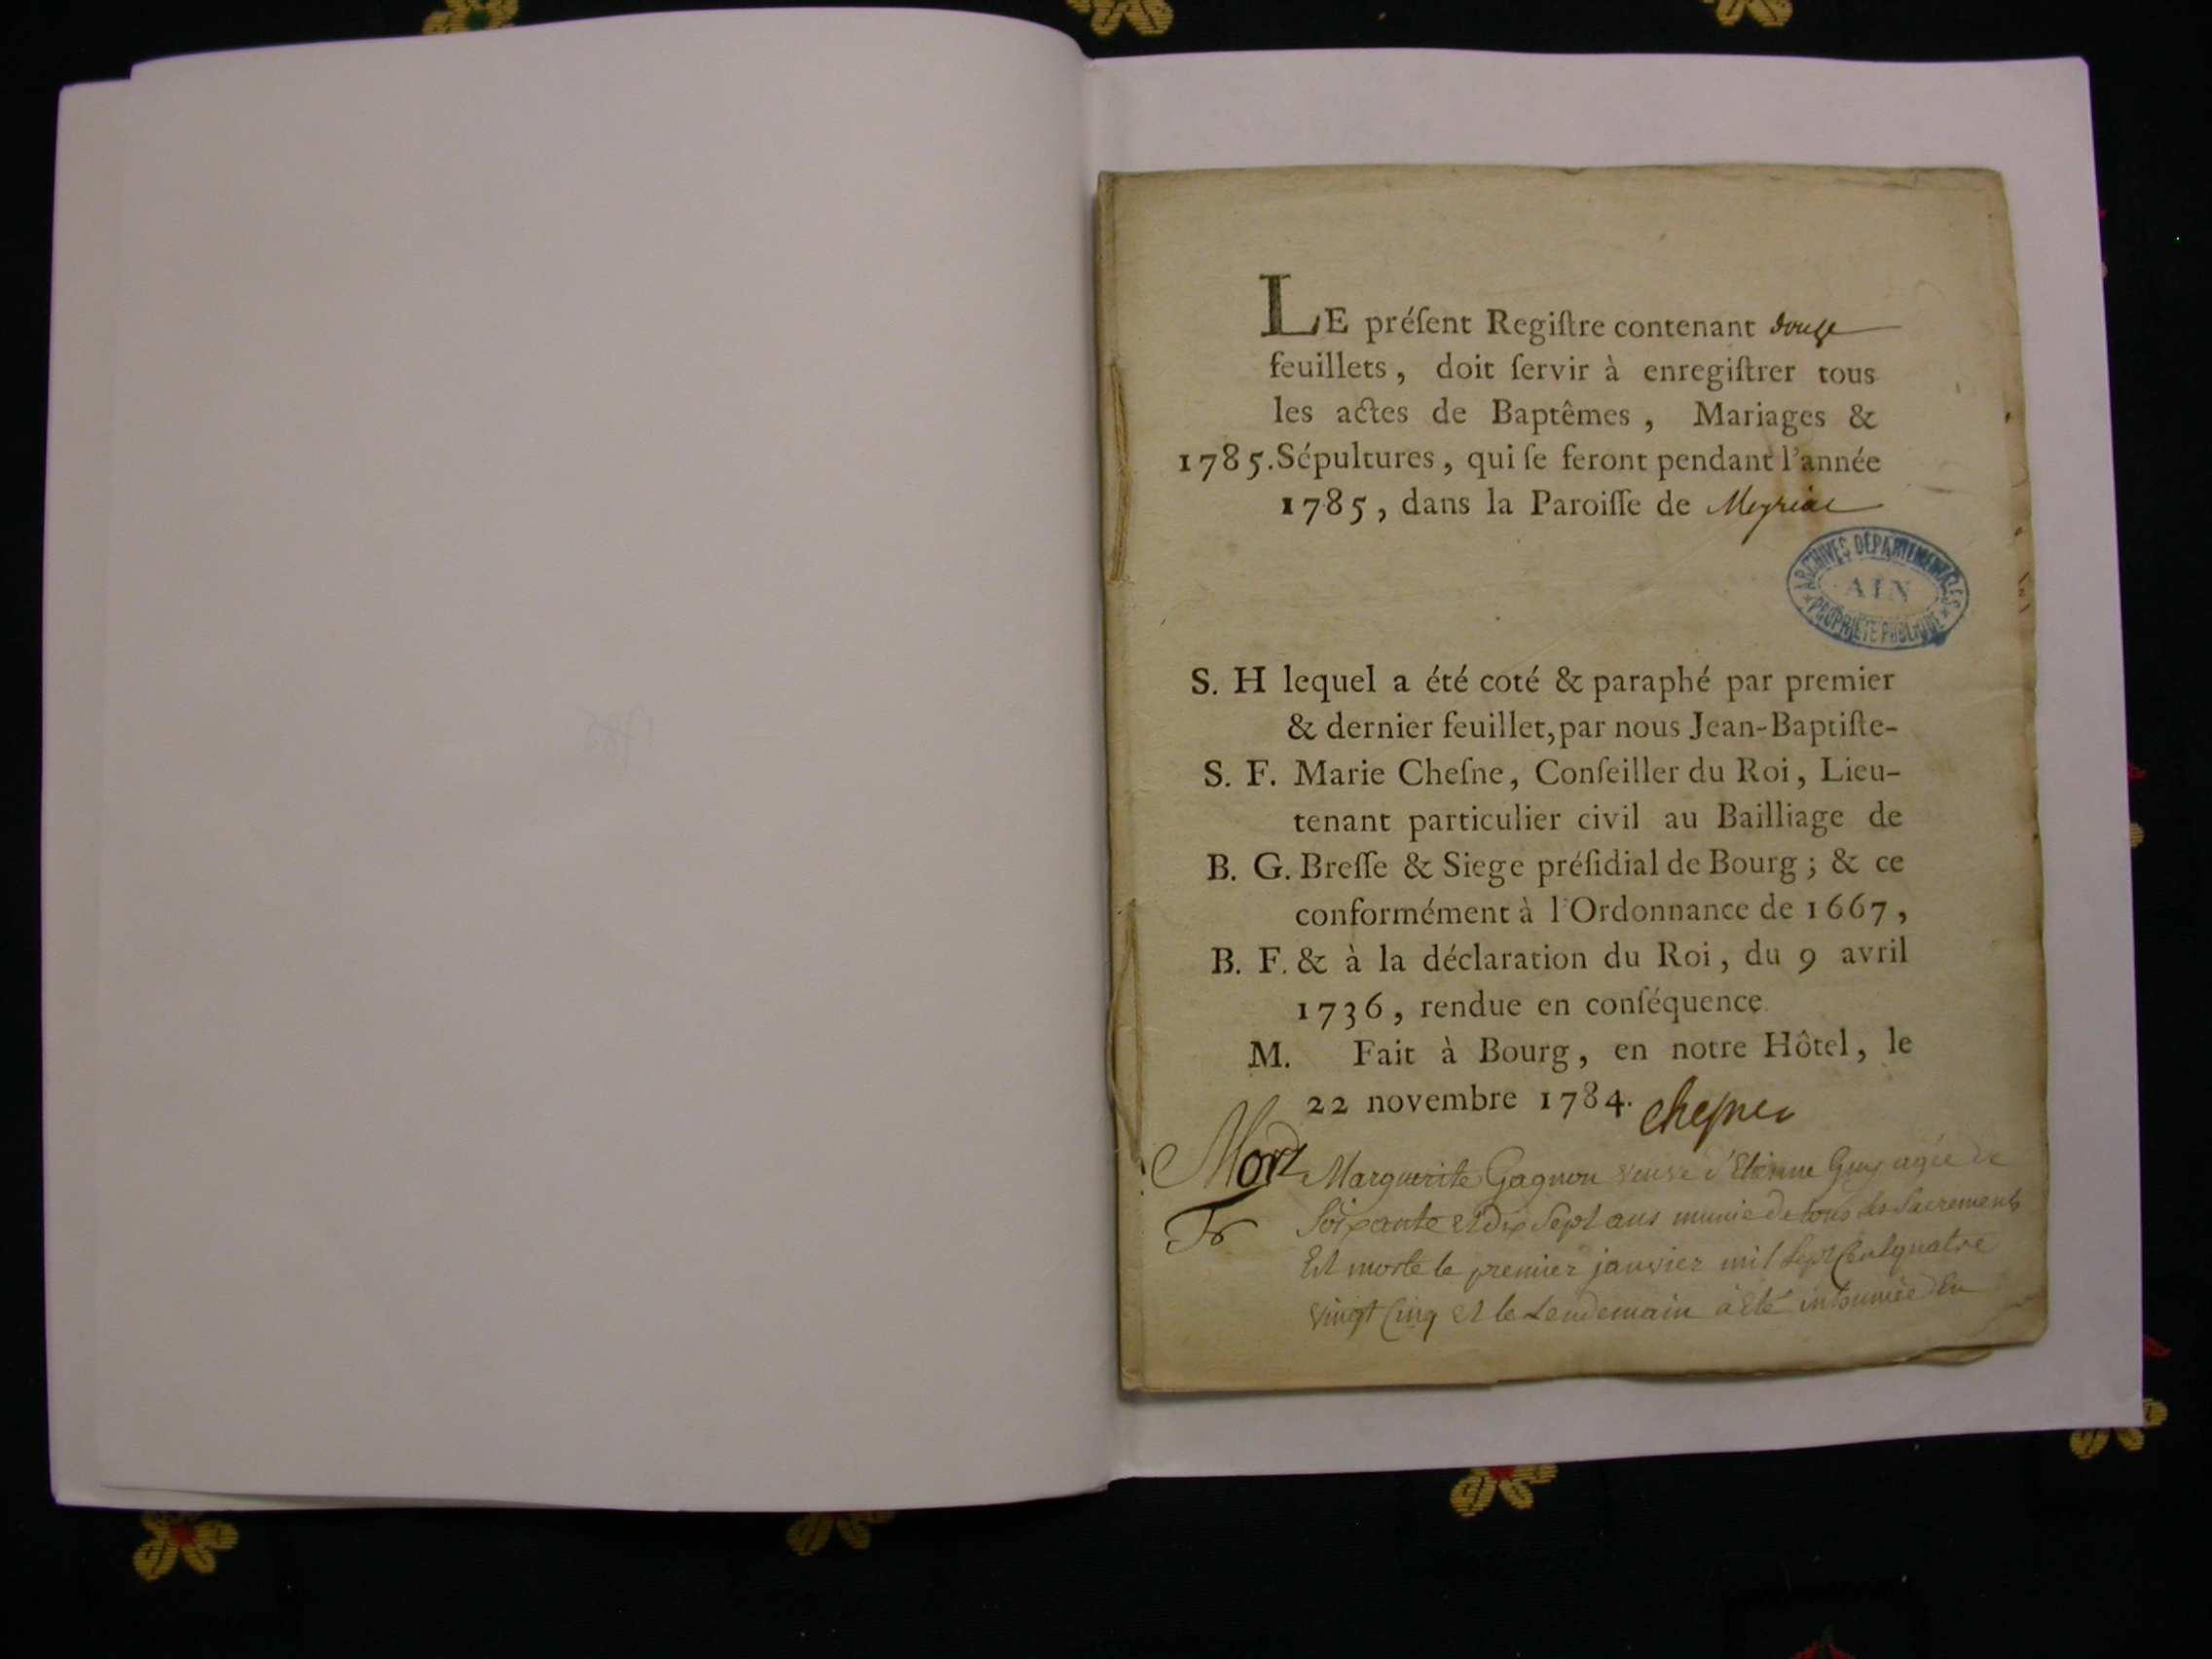 LE préſent Regiſtre contenant douze
feuillets, doit ſervir à enregiſtrer tous
les actes de Baptêmes, Mariages &
1785. Sépultures, qui ſe feront pendant l'année
1785, dans la Paroiſſe de Meyriat
ARCHIVES DÉPARTEMENTALES
AIN
PROPRIÉTÉ PUBLIQUE
S. H lequel a été coté & paraphé par premier
& dernier feuillet, par nous Jean-Baptiſte-
S. F. Marie Cheſne, Conſeiller du Roi, Lieu-
tenant particulier civil au Bailliage de
B. G. Breſſe & Siege préſidial de Bourg; & ce
conformément à l'Ordonnance de 1667,
B. F. & à la déclaration du Roi, du 9 avril
1736, rendue en conſéquence.
M. Fait à Bourg, en notre Hôtel, le
22 novembre 1784. Chesne
Mort Marguerite Gagnon veuve d'Etienne Guy agée de
Soixante et dix Sept ans munie de tous les Sacrements
Est morte le premier janvier mil Sept Cent quatre
vingt Cinq et le Lendemain a été inhumée En